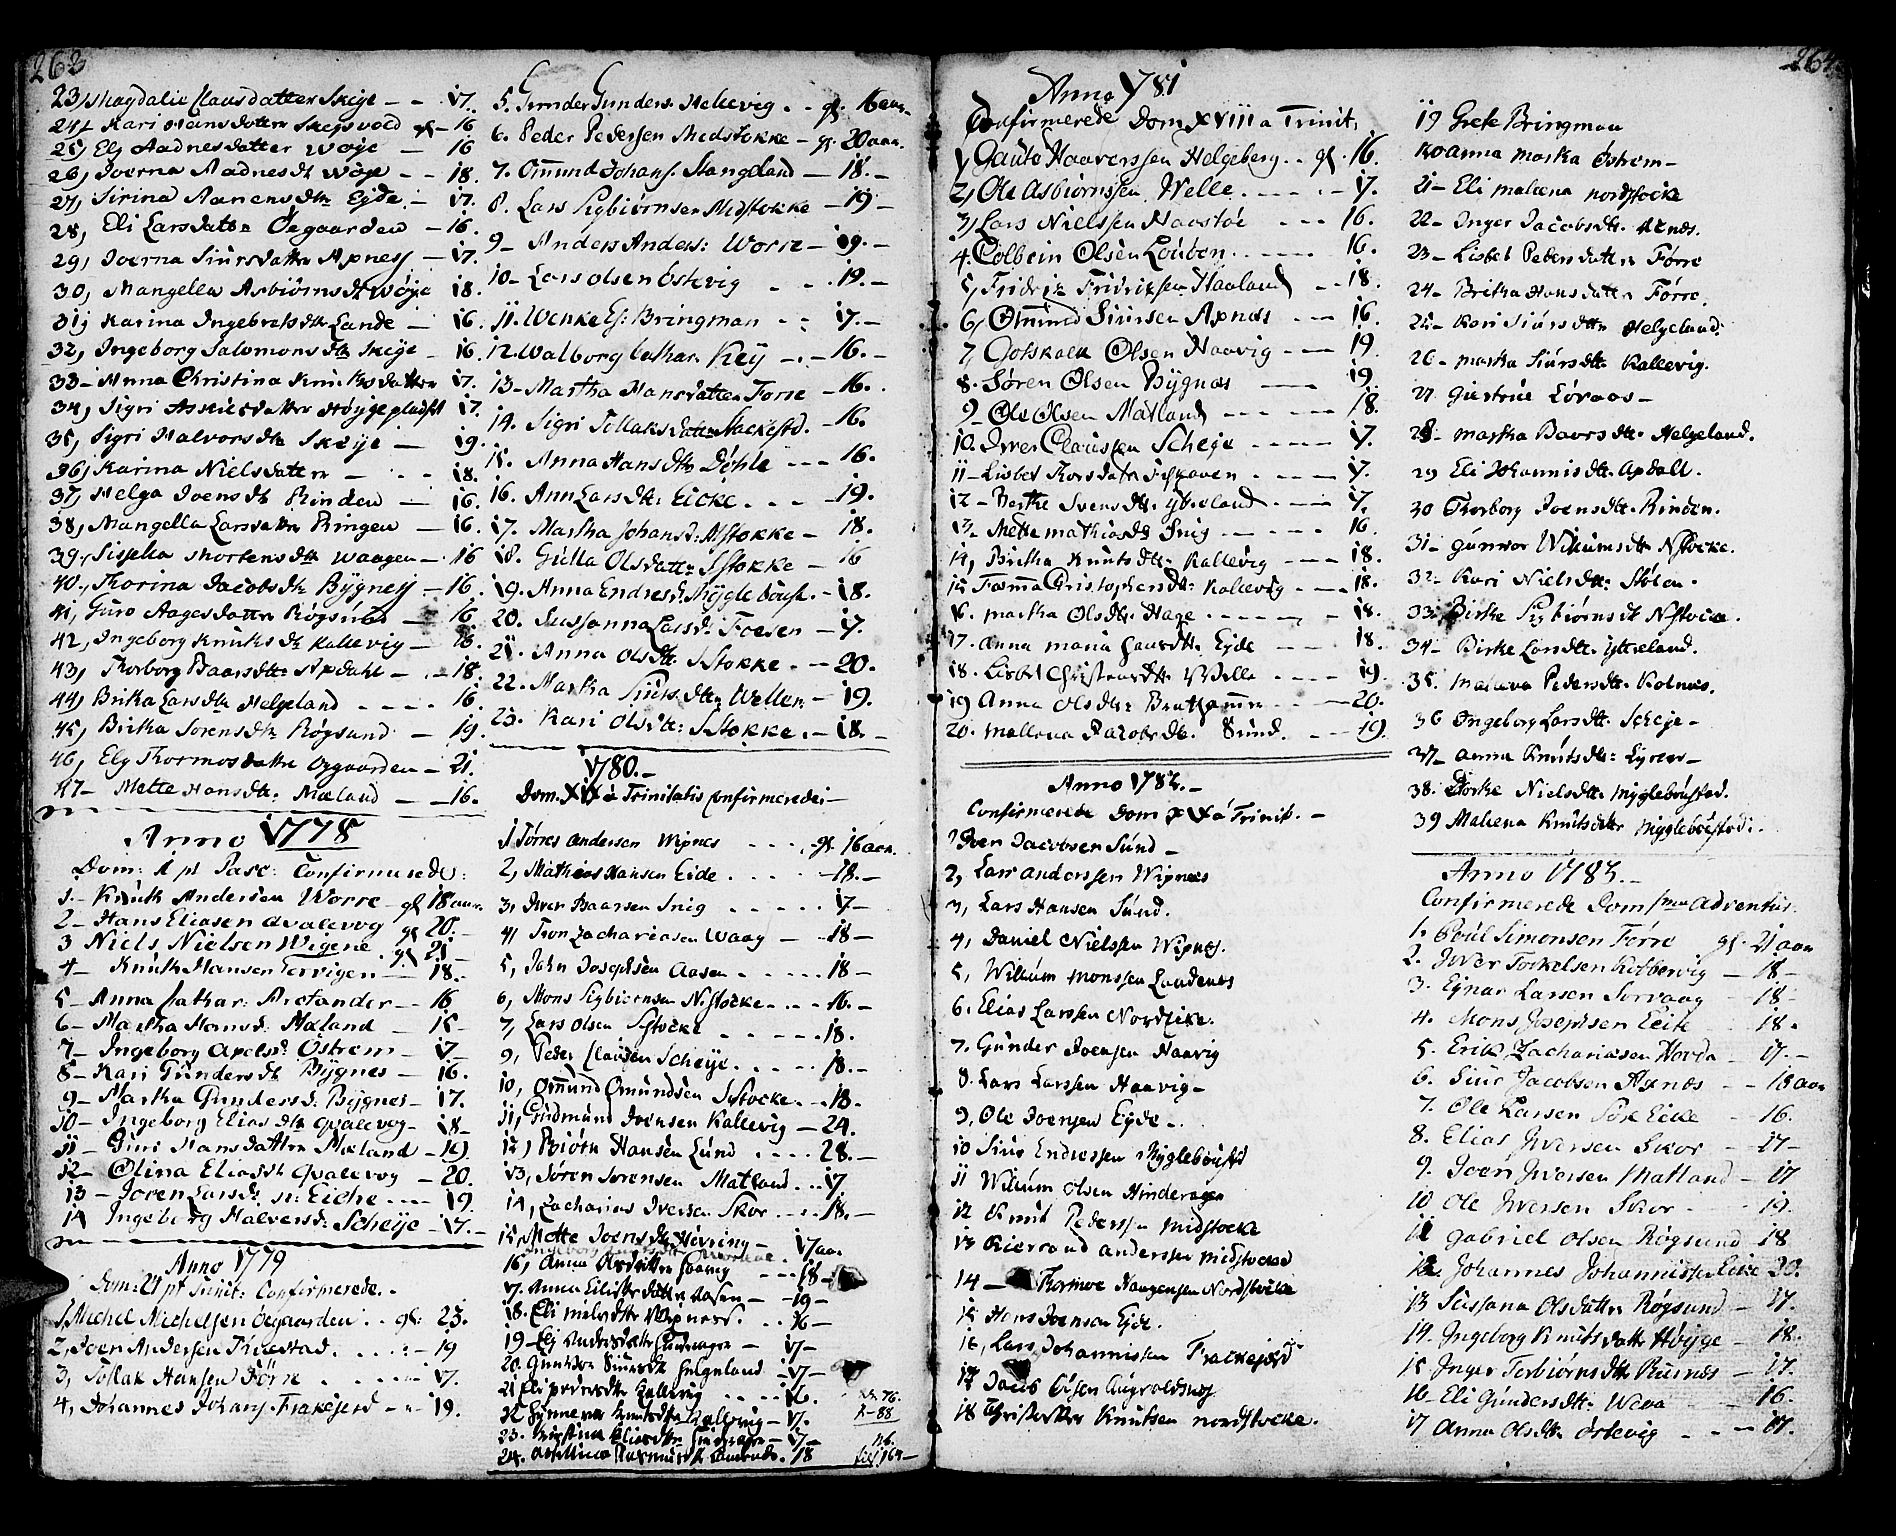 263
23, Magdalie Clausdatter Skeye - - 17.
24, Kari Hansdatter gl - 16
25, Ely Aadnesdatter Woye - 16
26, Joerna Aadnesdtr Woye - - 18.
27, Sirina Aanensdtr Eyde - 17.
28, Eli Larsdatter Øegaarden - 16.
29, Joerna Siursdatter Apness - 17.
30, Mangella Asbiørnsdtr Woye 18.
31, Karina Ingebretsdtr Lande - 16.
32, Ingeborg Salomonsdtr Skeye - 16
33 - Anna Christina Knudsdatter 17.
34, Sigri Askielsdatter 17.
35, Sigri Halvorsdtr Skeye - 19.
36, Karina Nielsdatter - 18.
37, Helga Joensdtr Rinden - 16.
38, Mangella Larsdatter Ringen - 16.
39, Sisselia Mortensdtr Waagen - 16
40, Thorina Jacobsdtr Bygness - 16.
41, Guro Aagesdatter Røgsund 16
42, Ingeborg Knutsdtr Kallevig - 18.
43, Thorborg Baarsdtr Apdahl - 18.
44, Brita Larsdtr Helgeland - - - - 16.
45, Britha Sorensdtr Røgsund - 19.
46, Ely Thormosdatter Øegaarden - 21.
47 - Mette Hansdtr: Mæland - - 16.
Anno 1778
Dom: 1 pt Pasc: Confirmerede:
1. - Knutk Andersen Worre - gl 18 aar.
2 - Hans Eliasen Qvalevog gl 20. -
3 Niels Nielsen Wigene gl 21 -
4 - Knutk Hansen - 18.
5 - Anna Cathar: Arctander - 16
6 - Martha Hansd: Mæland - 15 -
7 - Ingeborg Axelsd: Østrem - 17
8 - Kari Gundersdtr Bygnes - 16.
9 - Martha Gundersd: Bygnes - 17.
10 - Ingeborg Eliasdtr Qvalevog - 18 -
11 - Guri Hansdatter Mæland - 19.
12 - Olina Eliasdtr Qvalevog - 20.
13 - Joren Larsdtr n: Eiche - - - 19
14 Ingeborg Halversd: Scheye - 17. -
Anno 1779
Dom: 21 pt Trinit: Confirmerede. -
1, Michel Michelsen Øegaarden . . gl: 23.
2, Joen Andersen - 19
3, Tollak Hansen Førre - 17.
4, Johannes Johans: Frakejerd - - 19.
5. Gunder Gunders: Hellevig . . gl. 16 aar.
6. Peder Pedersen Medstokke - gl. 20 aar.
7. Omund Johans: Stangeland - 18. -
8. Lars Sigbiørnsen Nestokke - 19 -
9 - Anders Anders: Worre - 19. -
10 - Lars Olsen Østevig - - 19. -
11. Wenke Es: Bringman - - 17. -
12. Walborg Cathar: Key - . - 16. -
13 - Martha Hansdatter Førre - 16. .
14. Sigri Tollaksdatter Stockestd. - 16.
15. Anna Hansdtr Døhle - - - 16.
16. Ann Larsdtr: Eicke . . - 19.
17. Martha Johansd: Nstokke - 18.
18. Gulla Olsdatter Sstokke - 16
19. Anna Endresd: Mygleboust. - 18.
20. Sussanna Larsd: Foesen - 17.
21. Anna Olsdtr: Sstokke . - - 20.
22. Martha Siursdtr Wellen - 19.
23. Kari Olsdtr: Sstokke . - 18. -
1780. -
Dom. XIX a Trinitatis Confirmerede: -
1 Tørres Andersen Wignes - - - . gl. 16 aar.
2, Mathias Hansen Eide . . . . . - 18. -
3, Iver Baarsen Snig . . . . . 17 -
4, Tron Zachariasen Waag - - . 18 -
5, John Josephsen Aasen . . . . . 18 -
6, Mons Sigbiornsen Nstocke . . . 16. -
7, Lars Olsen Sstocke - - - - - 18.
9, Peder Clausen Scheye . . . . . 18. -
10, Omund Omundsen Sstocke . . . 18.
11, Gudmund Joensen Kallevig - 24.
12, Biørn Hansen Lund . . . . 28. -
13, Søren Sørensen Matland . . 17
14, Zacharias Iversen Skor . . . . 18. -
15, Mette Joensdtr Høvring - 17 aar.
16, Anna Olsdatter Haavig - - - 18 -
17. Anna Elisedatter Aasen - 19 -
18. Eli Nilsdtr Wignes . . . 16 -
19 - Elj Andersdatter - 17 -
20. Gunhilda Siursdtr Helgeland - 17 -
21 Eli Pedersdtr Kallevig . . . . 16.
22 Synneva Knutsdtr Kallevig - 17.
23. Kirstina Eliasdtr - 17 -
24. 18
264
Anno 1781
Confirmerede Dom XVIII a Trinit.
1, Gauto Haaverssen Helgeberg . . gl. 16.
2, Ole Asbiørnssen Welle . - - . - 17.
3, Lars Nielssen Havstøe - - - 16.
4. Colbein Olsen Louven . . . . . 16.
5, Fridrik Fridriksen Haaland - - 18.
6, Omund Siursen Apnæs - - - 16.
7, Gotskalk Olsen Haavig - - - 19
8. Søren Olsen Bygnæs - 19
9 - Ole Olsen Matland - - - 18.
10. Iver Claussen Schege - - - 17.
11 - Lisbet Thorsdatter - - - 17.
12 - Berthe Svensdtr: Ytreland . . - - 17.
13. Mette Mathiasdtr Snig - - - 16
14, Britha Knutsdtr: Kallevig - - - 18.
15 Fæma Christophersdtr: Kallevig - - - . 18.
16. Martha Olsdtr: Hage . - - - - 18.
17. Anna Maria Hansdtr: Eyde - - 18.
18. Lisbet Christensdtr Welle - - - - 19.
19 Anna Olsdtr: - - - 20.
20. Mallena Jacobsdtr. Sund. - - - 19
Anno 1782. -
Confirmerede Dom XX a Trinit. -
1 Joen Jacobsen Sund -
2, Lars Anderssen Wignæs
3, Lars Hansen Sund.
4, Daniel Nielssen Wignes.
5, Willum Monssen Landenæs
6. Elias Larssen Nordeike.
7. Gunder Joensen Haavig
8. Lars Larssen Haavig -
9, Ole Joensen Eyde - .
10 Siur Endressen Mygleboust
11 Willum Olsen Hinderagen
12 Knut Pederssen Midstocke
13 Anderssen Midstocke
14 - Thormoe Haagensen Nordstocke
15 Hans Joensen Eyde.
16, Lars Johannissen Frackejerd
17 Jacob Olsen Augvoldsnes
18 Christopher Knutsen Nordstocke.
19 Grete Bringman
20 Anna Martha Østrem -
21 - Eli Malena Nordstocke
22 - Inger Jacobsdtr.
23 - Lisbet Pedersdatter Førre
24 - Britha Hansdatter Førre.
25 - Kari Siursdtr Helgeland.
26 - Martha Siursdtr Kallevig.
27 Giertrue Løvaas -
28 - Martha Baarsdtr. Helgeland.
29 Eli Johannisdtr. Apdall.
30 Thorborg Joensdtr. Rinden.
31 - Gunvor Willumsdtr. Nstocke.
32 - Kari Nielsdtr: Stølen.
33. Birte Sigbiørnsdtr Nstocke.
34 - Birte Larsdtr. Ytreland.
35. Malena Pedersdtr. Kolnæs.
36 Ingeborg Larsdtr. Scheje -
37 - Anna Knutsdtr:
38. Dorthe Nielsdtr. Mygleboustad.
39 Malena Knutsdtr Mygleboustad.
Anno 1783. -
Confirmerede Dom 1ma Adventus.
1. Poul Simonsen Førre gl. 21 aar
2. Iver Torkelsen - 18 -
3. Ejnar Larsen Sørvaag - 18 -
4. Mons Josephsen Leite - 18.
5. Erik Zachariasen Hovda - 17. -
6. Siur Jacobsen Apnæs - - 18 aar
7. Ole Larsen Sør Eicke - 16.
8. Elias Iversen Skor - - 17 -
9. Joen Iversen Matland - 17
10 Ole Iversen Skor - - 19.
11 Gabriel Olsen Røgsund 18
12. Johannes Johannissen Eicke 20.
13 Sussana Olsdatter Røgsund - 17.
14 - Ingeborg Knutsdatter Høyge - 18.
15 Inger Torbiørnsdtr Risnes - 17.
16 - Eli Gundersdtr. Wea - 16.
17 Anna Olsdtr Østevig - - - 17.